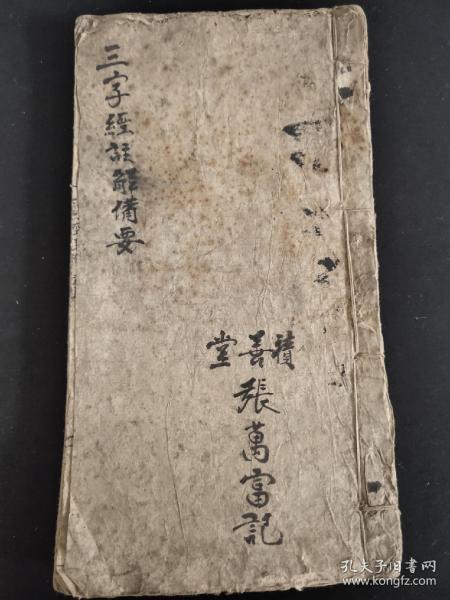 三字經註解備要
積善堂
張萬富記
孔夫子旧书网
www.kongfz.com